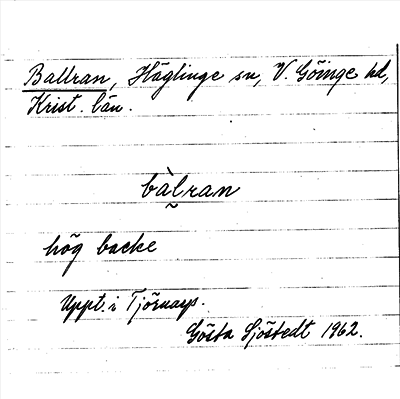 Ballran, Häglinge sn, V. Göinge hd,
Krist. län.
bàl̰ran
hög backe
Uppt. i Tjörnarp.
Gösta Sjöstedt 1962.